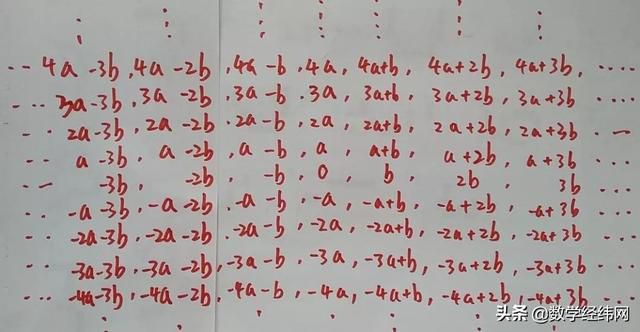 ⋮ ⋮ ⋮ ⋮ ⋮ ⋮
... 4a-3b, 4a-2b, 4a-b, 4a, 4a+b, 4a+2b, 4a+3b, ....
... 3a-3b, 3a-2b, 3a-b, 3a, 3a+b, 3a+2b, 3a+3b ...
.. 2a-3b, 2a-2b, 2a-b, 2a, 2a+b, 2a+2b, 2a+3b ...
.. a-3b, a-2b, a-b, a, a+b, a+2b, a+3b ...
... -3b, -2b, -b, 0, b, 2b, 3b ...
.. -a-3b, -a-2b, -a-b, -a, -a+b, -a+2b, -a+3b ...
.. -2a-3b, -2a-2b, -2a-b, -2a, -2a+b, -2a+2b, -2a+3b ...
.. -3a-3b, -3a-2b, -3a-b, -3a, -3a+b, -3a+2b, -3a+3b ...
... -4a-3b, -4a-2b, -4a-b, -4a, -4a+b, -4a+2b, -4a+3b ...
头条 @数学经纬网